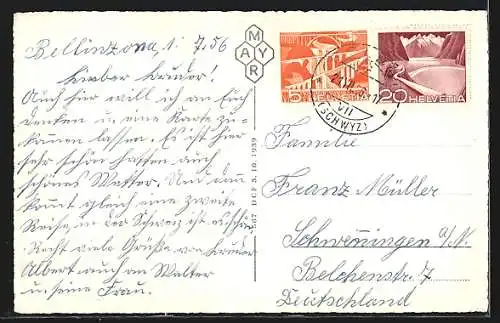 Bellinzona, 1. 7.56
Lieber Bruder!
Auch hier will ich an Euch
denken u. eine Karte zu-
kommen lassen. Es ist hier
sehr schön haben auch
schönes Wetter. Und dann
kommt gleich eine zweite
Reise, in der Schweiz ist es schön
Recht viele Grüße von Bruder
Albert auch an Walter
u. seine Frau.
MAYR
667 DCF 5. 10. 1939
5 HELVETIA
20 HELVETIA
VII
(SCHWYZ)
Familie
Franz Müller
Schwenningen a/N.
Belchenstr. 7
Deutschland